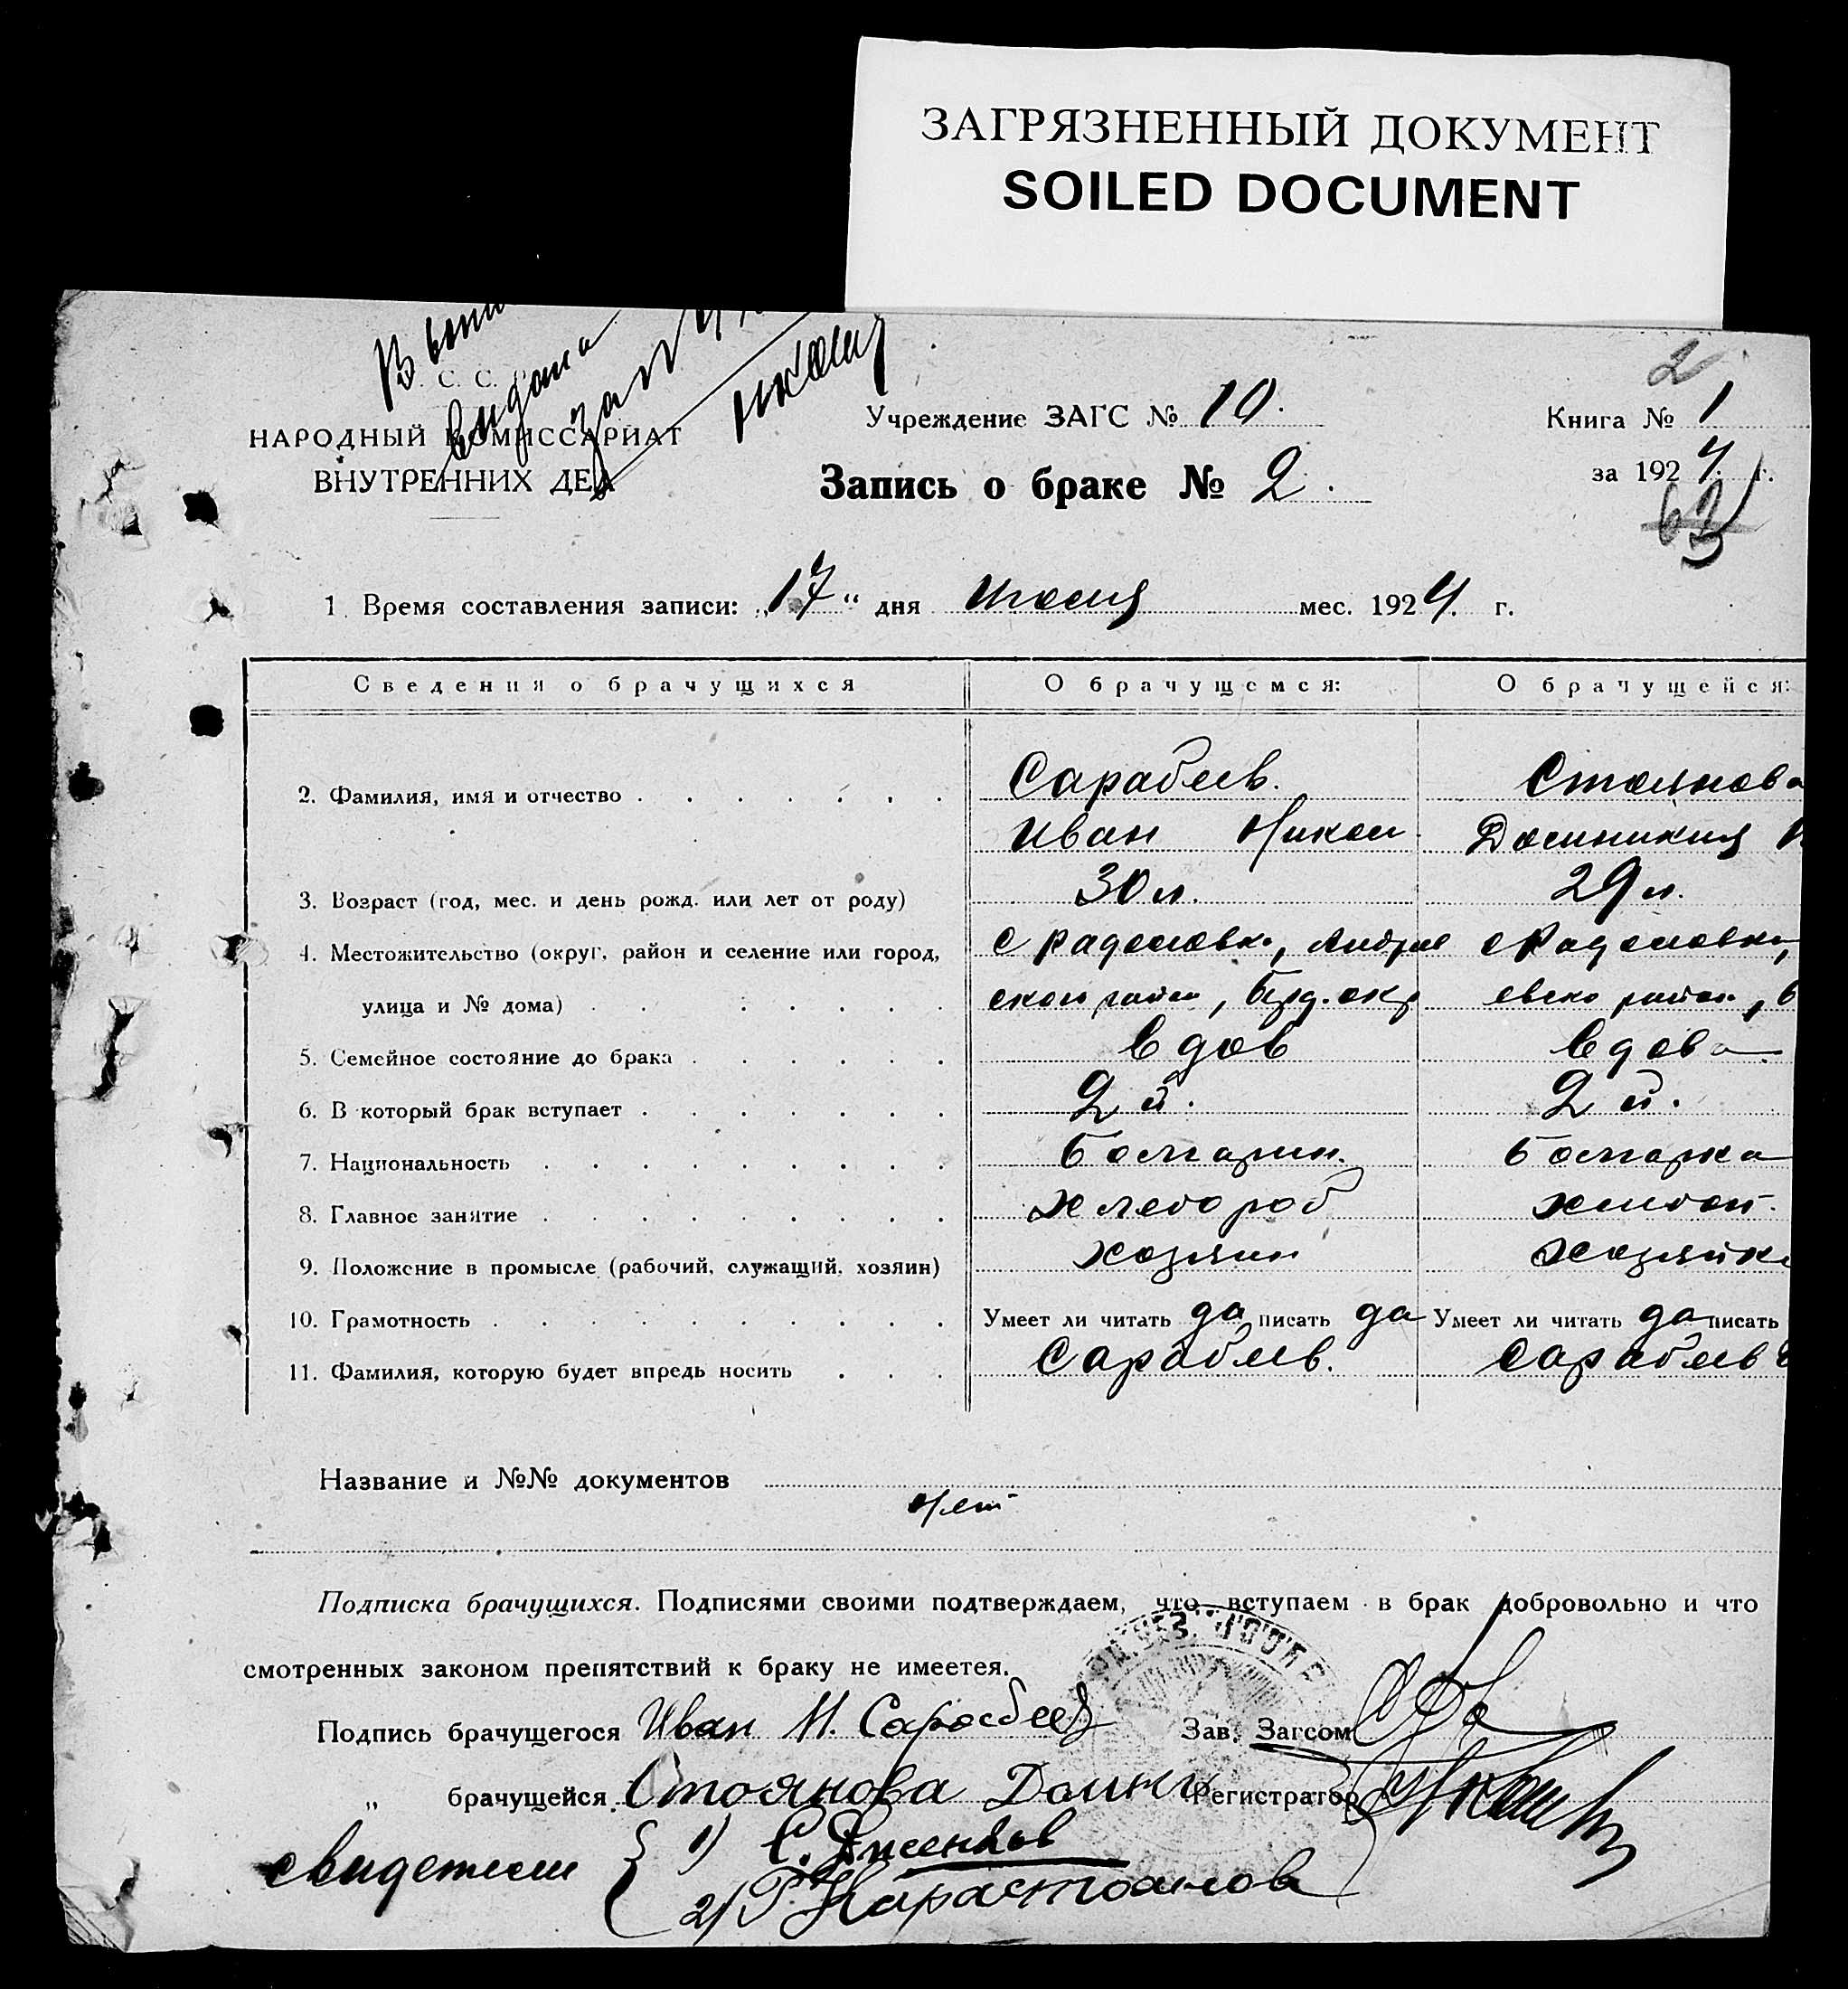 ЗАГРЯЗНЕННЫЙ ДОКУМЕНТ
SOILED DOCUMENT
2
С. С.
НАРОДНЫЙ КОМИССАРИАТ
ВНУТРЕННИХ ДЕЛ
выдана
Учреждение ЗАГС № 10.
Книга № 1
Запись о браке № 2.
за 1924. г.
63
1. Время составления записи: „17“ дня Июля мес. 1924. г.
Сведения о брачущихся О брачущемся: О брачущейся:
2. Фамилия, имя и отчество Сарабеев. Стоянова
Иван Никол. Домникия
3. Возраст (год, мес. и день рожд. или лет от роду) 30 л. 29 л.
4. Местожительство (округ, район и селение или город, с Радоловка, Андрее с Радоловка,
улица и № дома) ский район, Берд. окр евско район,
5. Семейное состояние до брака вдов вдова
6. В который брак вступает 2 й. 2 й.
7. Национальность Болгарин. Болгарка
8. Главное занятие хлебороб хлебоп.
9. Положение в промысле (рабочий, служащий, хозяин) хозяин хозяйка
10. Грамотность Умеет ли читать да писать да Умеет ли читать да писать
11. Фамилия, которую будет впредь носить Сарабеев. Сарабеев
Название и №№ документов
нет
Подписка брачущихся. Подписями своими подтверждаем, что вступаем в брак добровольно и что
смотренных законом препятствий к браку не имеетея.
Подпись брачущегося Иван Н. Сарабеев Зав. Загсом
„ брачущейся Стоянова Домки Регистратор
свидетели { 1)
2) Р. Карастоянова